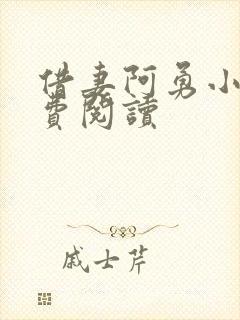 借妻阿勇小
費閱讀
戚士芹